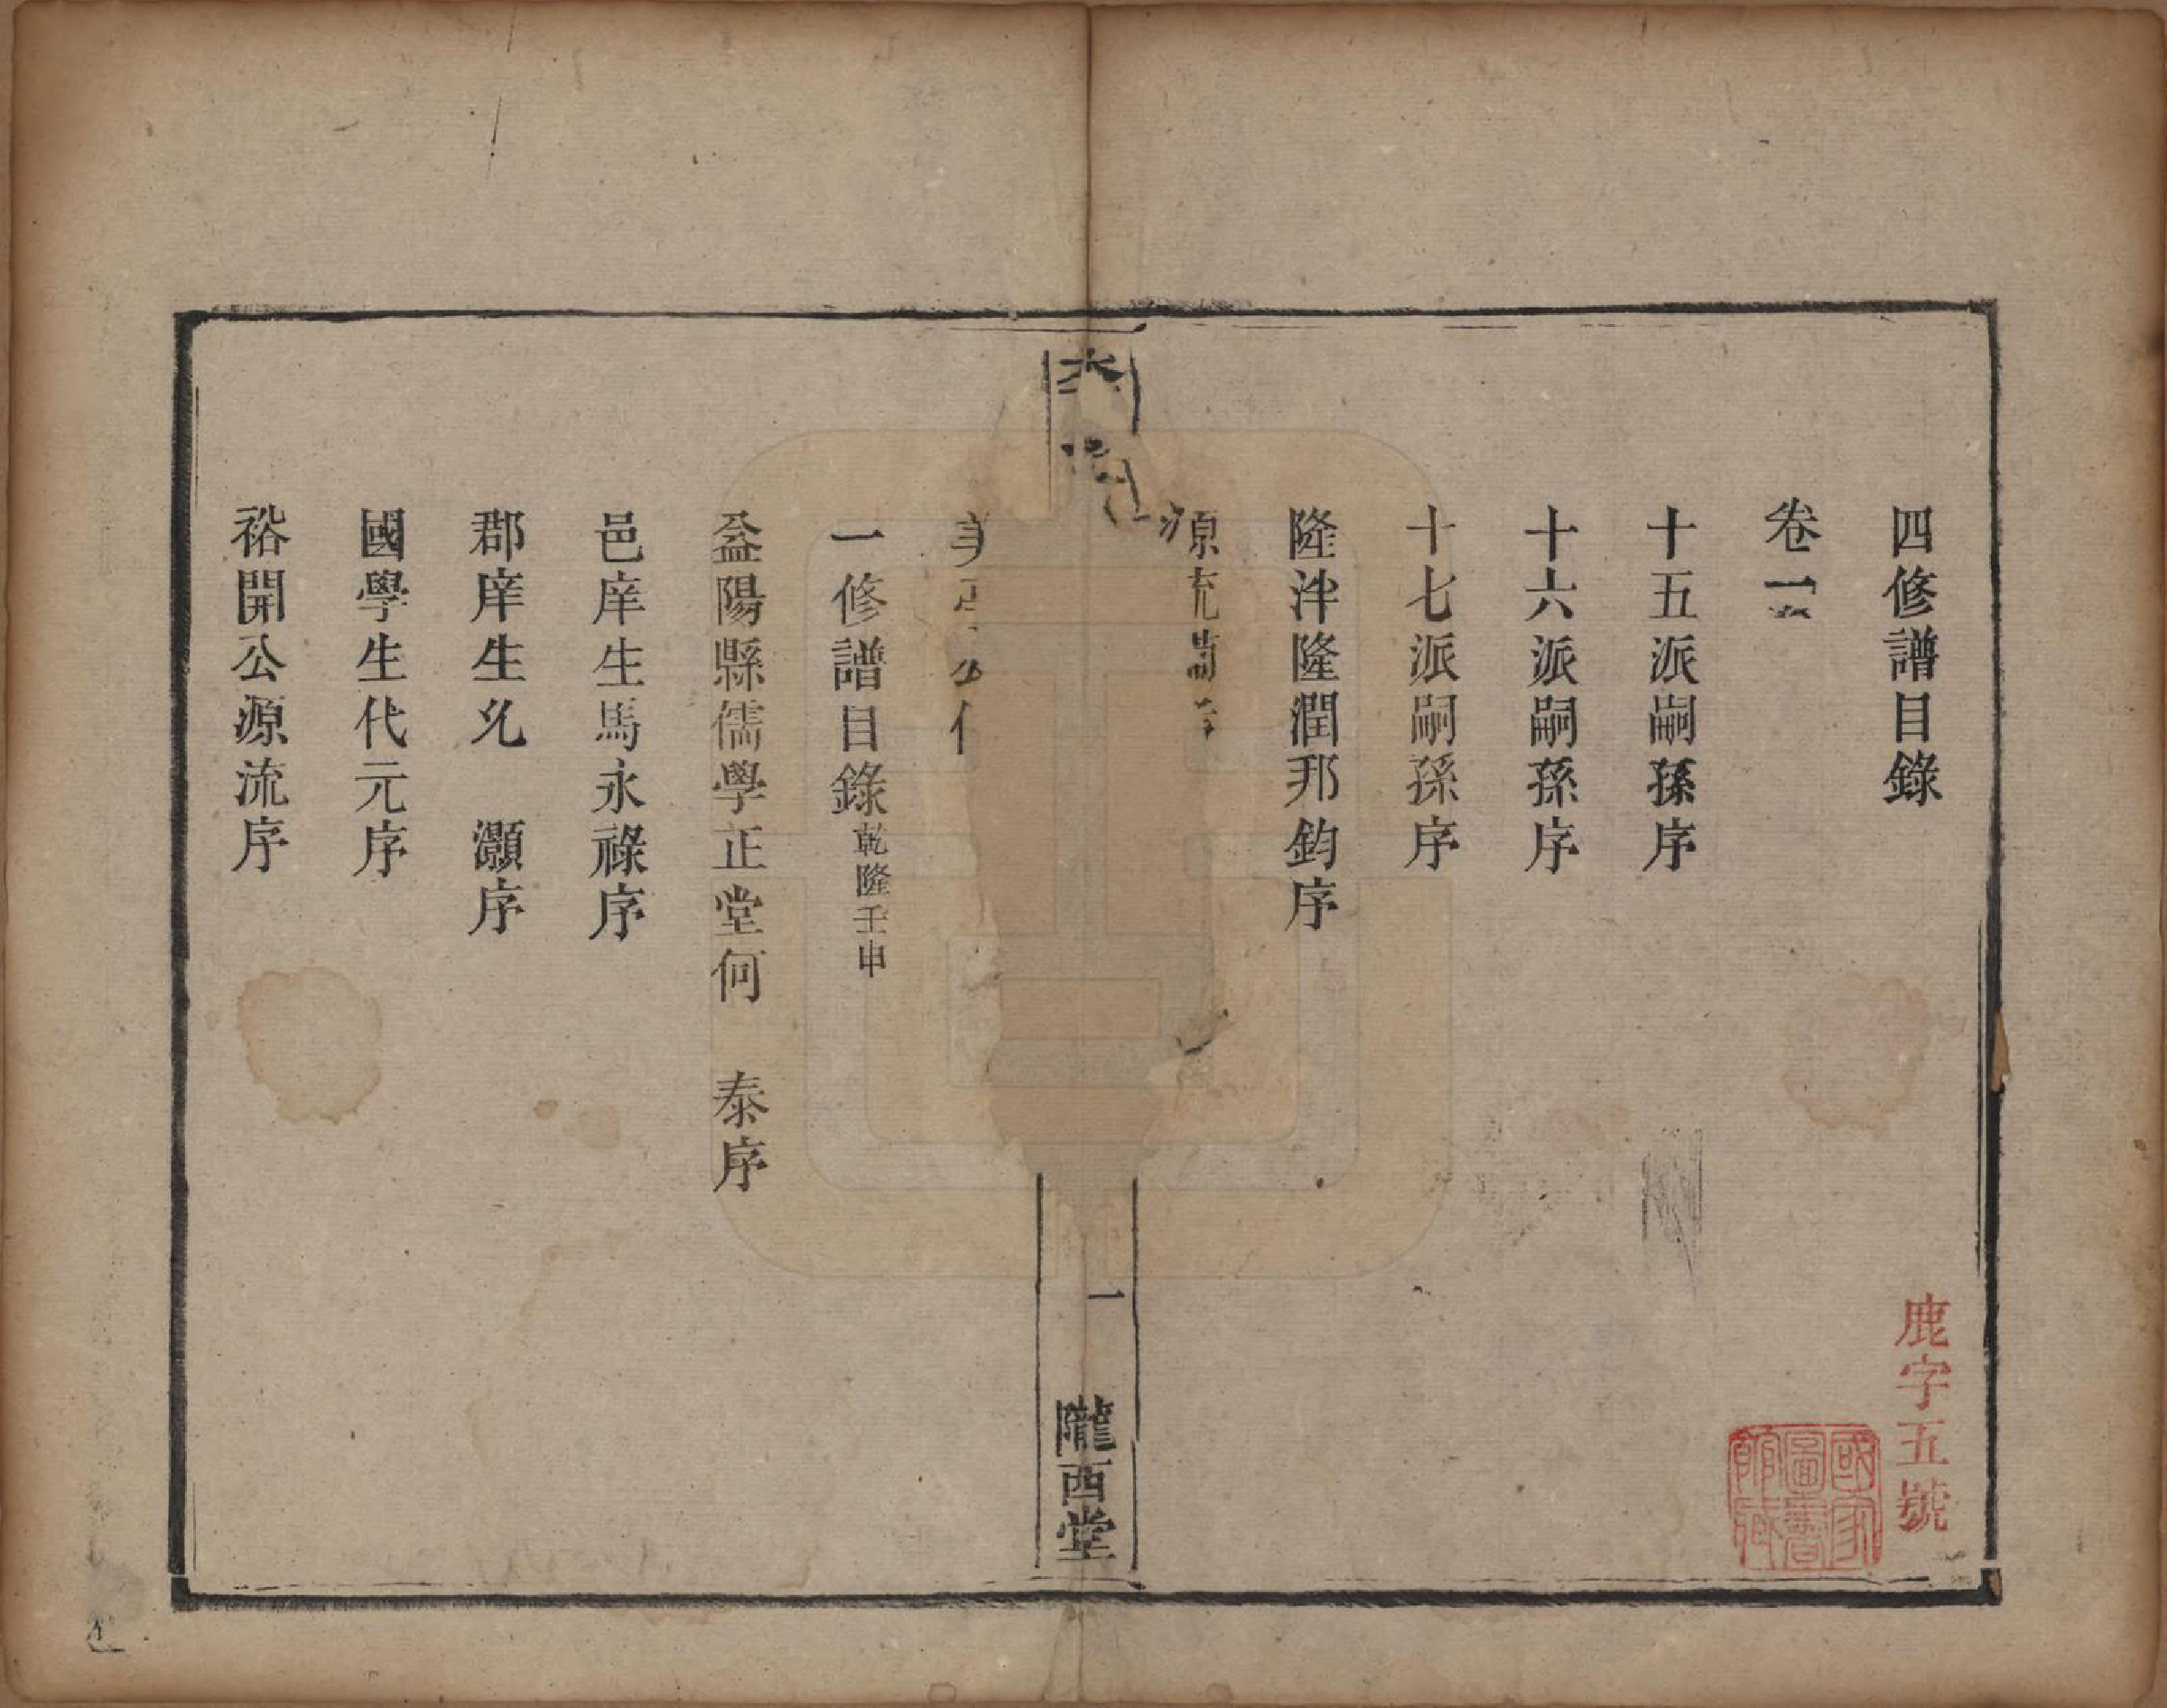 四修譜目錄
卷一
十五派嗣孫序
十六派嗣孫序
十七派嗣孫序
隆泮隆潤邦鈞序
源流
一修譜目錄乾隆壬申
益陽縣儒學正堂何 泰序
邑庠生馬永祿序
郡庠生 灝序
國學生代元序
裕開公源流序
一
隴西堂
鹿字五號
國家圖書館藏